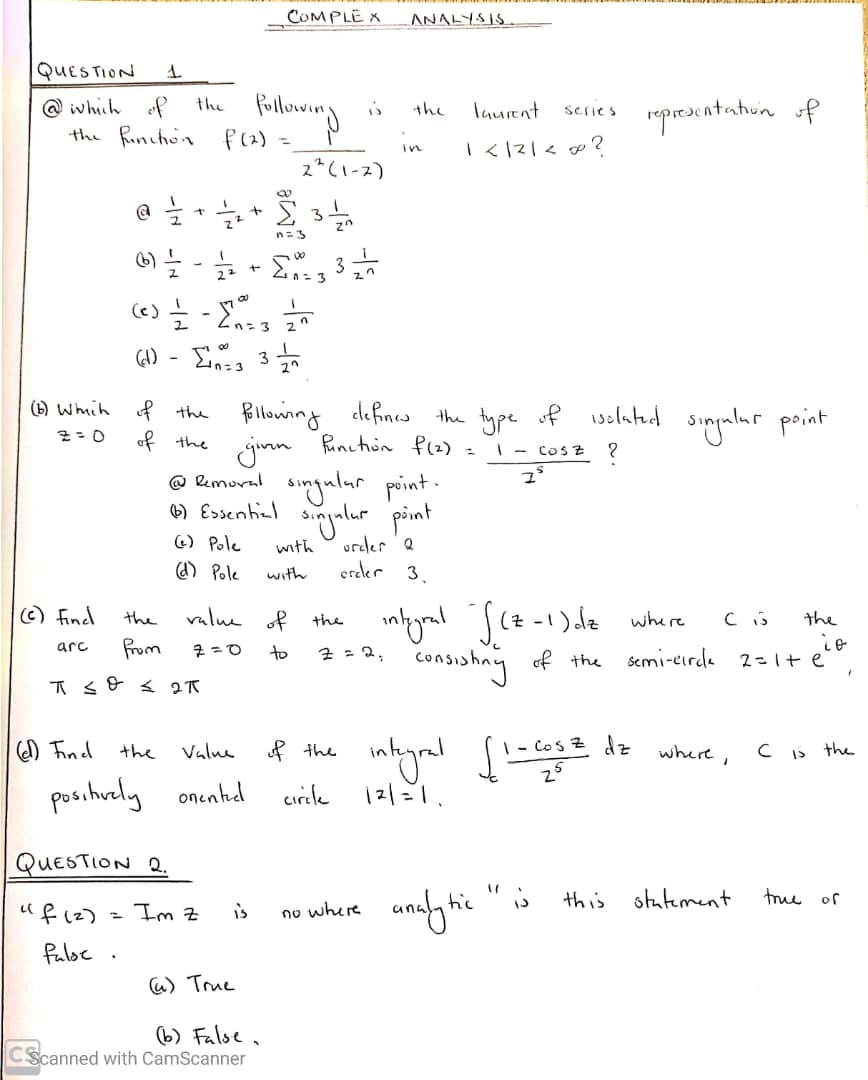 COMPLEX ANALYSIS.
QUESTION 1
(a) which of the following is the laurent series representation of
the function f(z) = 1/(z²(1-z)) in 1 < |z| < ∞?
(a) 1/z + 1/z² + ∑_{n=3}^{∞} 3 1/zⁿ
(b) 1/z - 1/z² + ∑_{n=3}^{∞} 3 1/zⁿ
(c) 1/z - ∑_{n=3}^{∞} 1/zⁿ
(d) - ∑_{n=3}^{∞} 3 1/zⁿ
(b) Whih of the following defines the type of isolated singular point
z=0 of the given function f(z) = (1 - cos z)/z⁵ ?
(a) Removal singular point.
(b) Essential singular point
(c) Pole with order 2
(d) Pole with order 3.
(c) find the value of the integral ∫_C (z-1)dz where C is the
arc from z=0 to z=2, consisting of the semi-circle z=1+e^{iθ},
π ≤ θ ≤ 2π
(d) Find the value of the integral ∫_C (1-cos z)/z⁵ dz where, C is the
positively oriented circle |z|=1.
QUESTION 2.
"f(z) = Im z is no where analytic" is this statement true or
false.
(a) True
(b) False.
CS Scanned with CamScanner